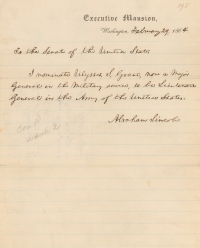 Executive Mansion,
Washington, February 29, 1864.
To the Senate of the United States.
I nominate Ulysses S. Grant, now a Major
General in the Military service, to be Lieutenant
General in the Army of the United States.
Abraham Lincoln